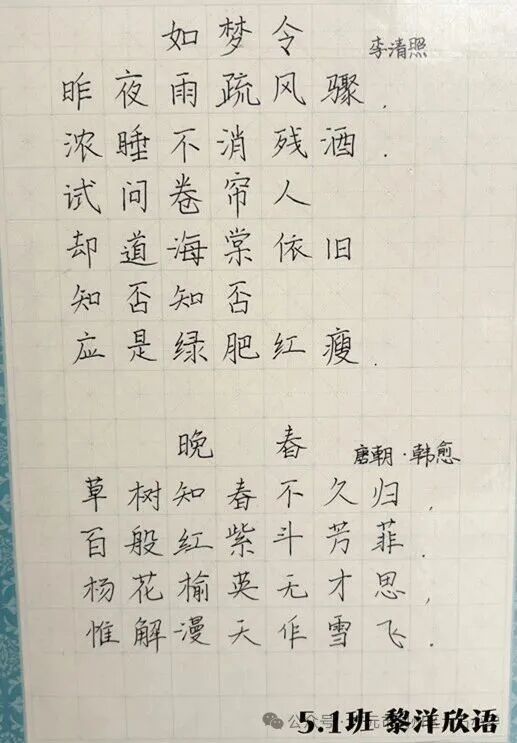 如梦令 李清照
昨夜雨疏风骤.
浓睡不消残酒.
试问卷帘人
却道海棠依旧
知否知否
应是绿肥红瘦.
晚春 唐朝·韩愈
草树知春不久归,
百般红紫斗芳菲.
杨花榆英无才思,
惟解漫天作雪飞.
公众号
5.1班 黎洋欣语